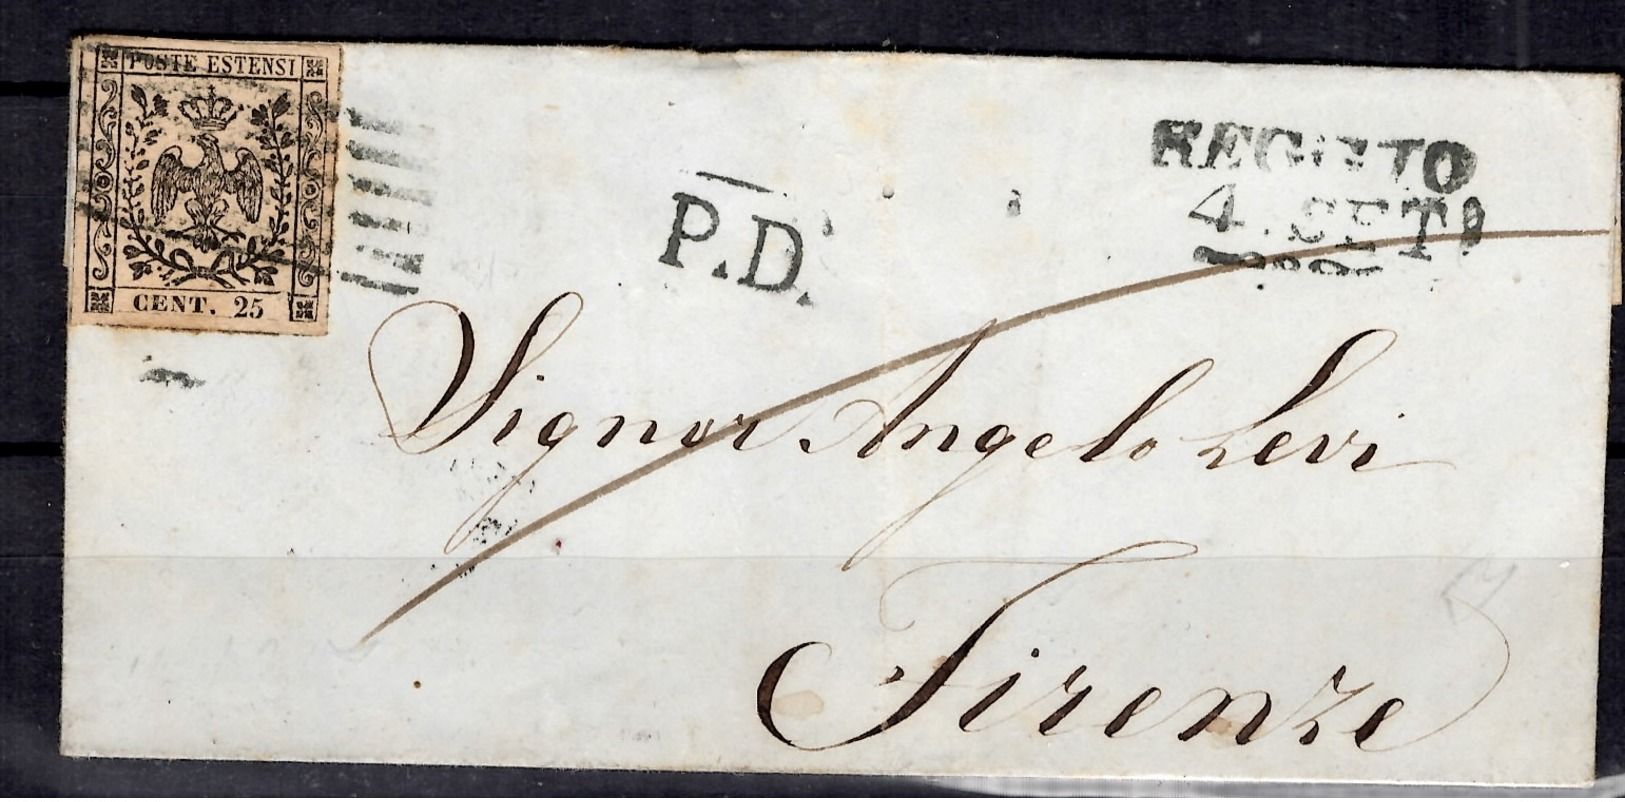 POSTE ESTENSI
CENT. 25
P.D.
REGGIO
4. SETT
Signor Angelo Levi
Firenze